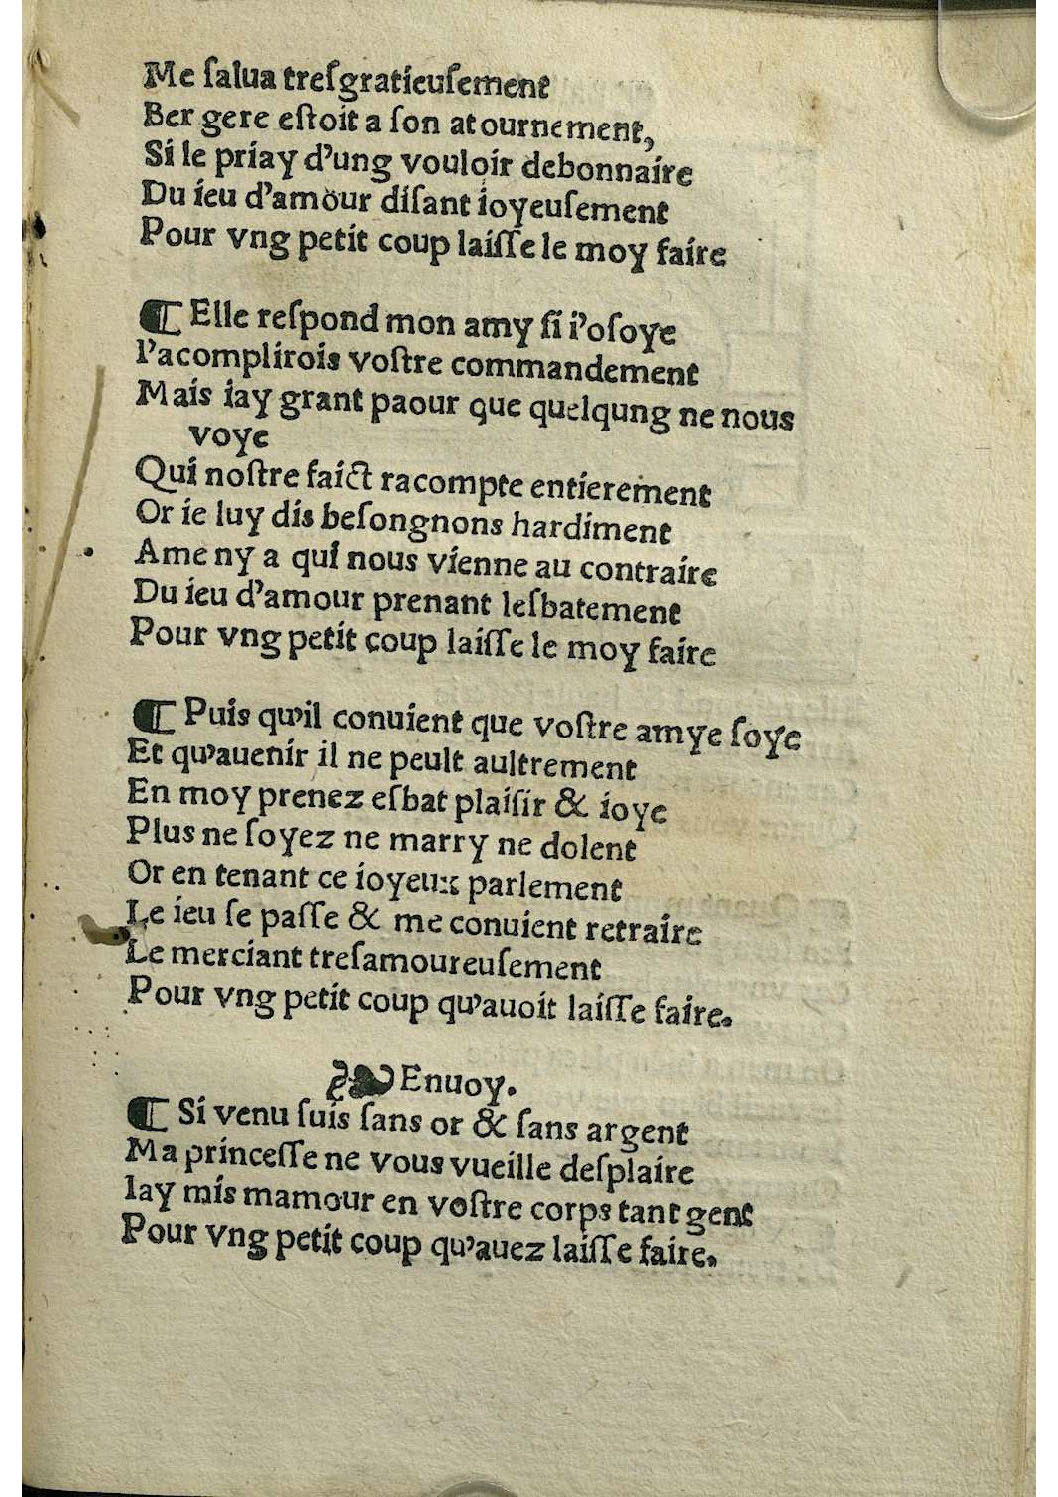 Me ſalua treſgratieuſement
Ber gere eſtoit a ſon at ournement,
Si le priay d'ung vouloir debonnaire
Du ieu d'amour diſant ioyeuſement
Pour vng petit coup laiſſe le moy faire
¶ Elle reſpond mon amy ſi i'oſoye
I'acomplirois voſtre commandement
Mais iay grant paour que quelqung ne nous
voye
Qui noſtre faict racompte entierement
Or ie luy dis beſongnons hardiment
Ame ny a qui nous vienne au contraire
Du ieu d'amour prenant leſbatement
Pour vng petit coup laiſſe le moy faire
¶ Puis qu'il conuient que voſtre amye ſoye
Et qu'auenir il ne peult aultrement
En moy prenez eſbat plaiſir & ioye
Plus ne ſoyez ne marry ne dolent
Or en tenant ce ioyeux parlement
Le ieu ſe paſſe & me conuient retraire
Le merciant treſamoureuſement
Pour vng petit coup qu'auoit laiſſe faire.
❧ Enuoy.
¶ Si venu ſuis ſans or & ſans argent
Ma princeſſe ne vous vueille deſplaire
Iay mis mamour en voſtre corps tant gent
Pour vng petit coup qu'auez laiſſe faire.